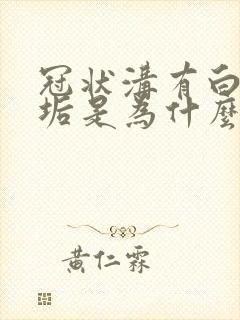 冠状溝有白
垢是為什麼
黃仁霖